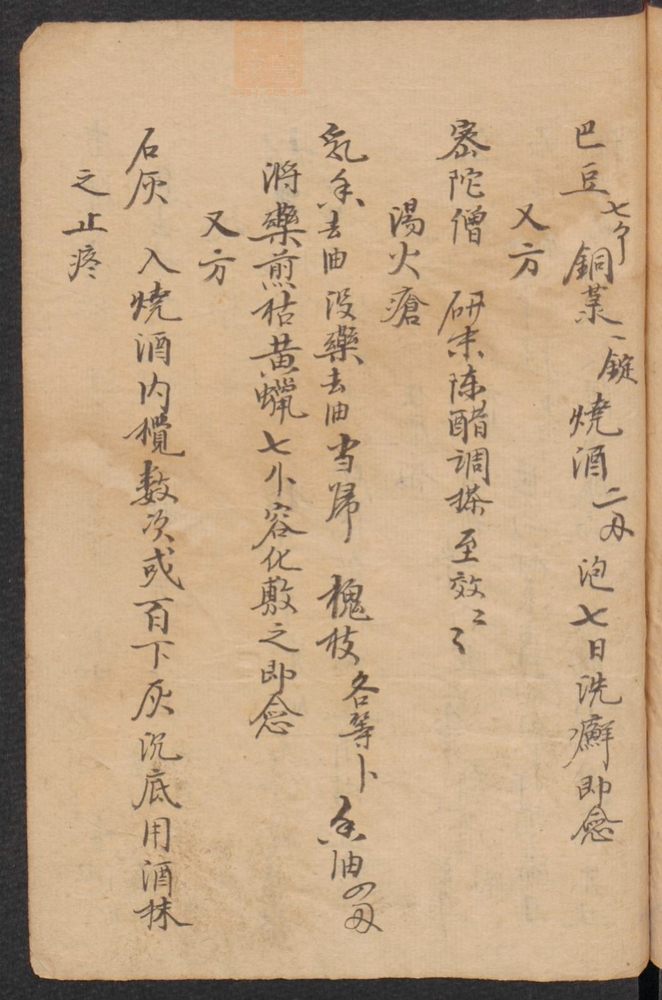 巴豆七个 銅菉一錠 燒酒二刄 泡七日洗癬即愈
又方
密陀僧 研末陈醋調搽至效〻
湯火瘡
乳香去油 没藥去油 当归 槐枝各等卜 香油四刄
将藥煎枯黄蠟七卜容化敷之即愈
又方
石灰 入燒酒内攪数次或百下灰沉底用酒抹
之止疼